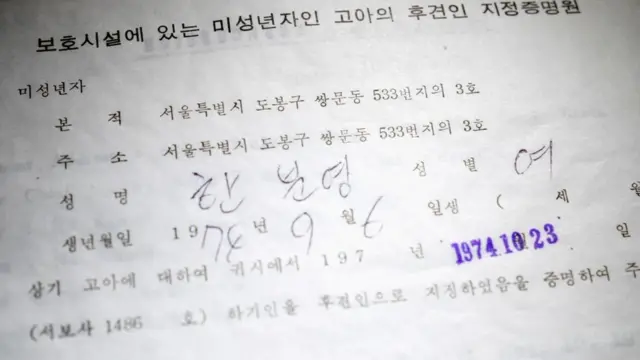 보호시설에 있는 미성년자인 고아의 후견인 지정증명원
미성년자
본 적 서울특별시 도봉구 쌍문동 533번지의 3호
주 소 서울특별시 도봉구 쌍문동 533번지의 3호
성 명 한 분영 성 별 여
생년월일 1974년 9월 6일생 ( 세
상기 고아에 대하여 귀시에서 197 년 1974.10.23 일
(서보사 1486 호) 하기인을 후견인으로 지정하였음을 증명하여 주